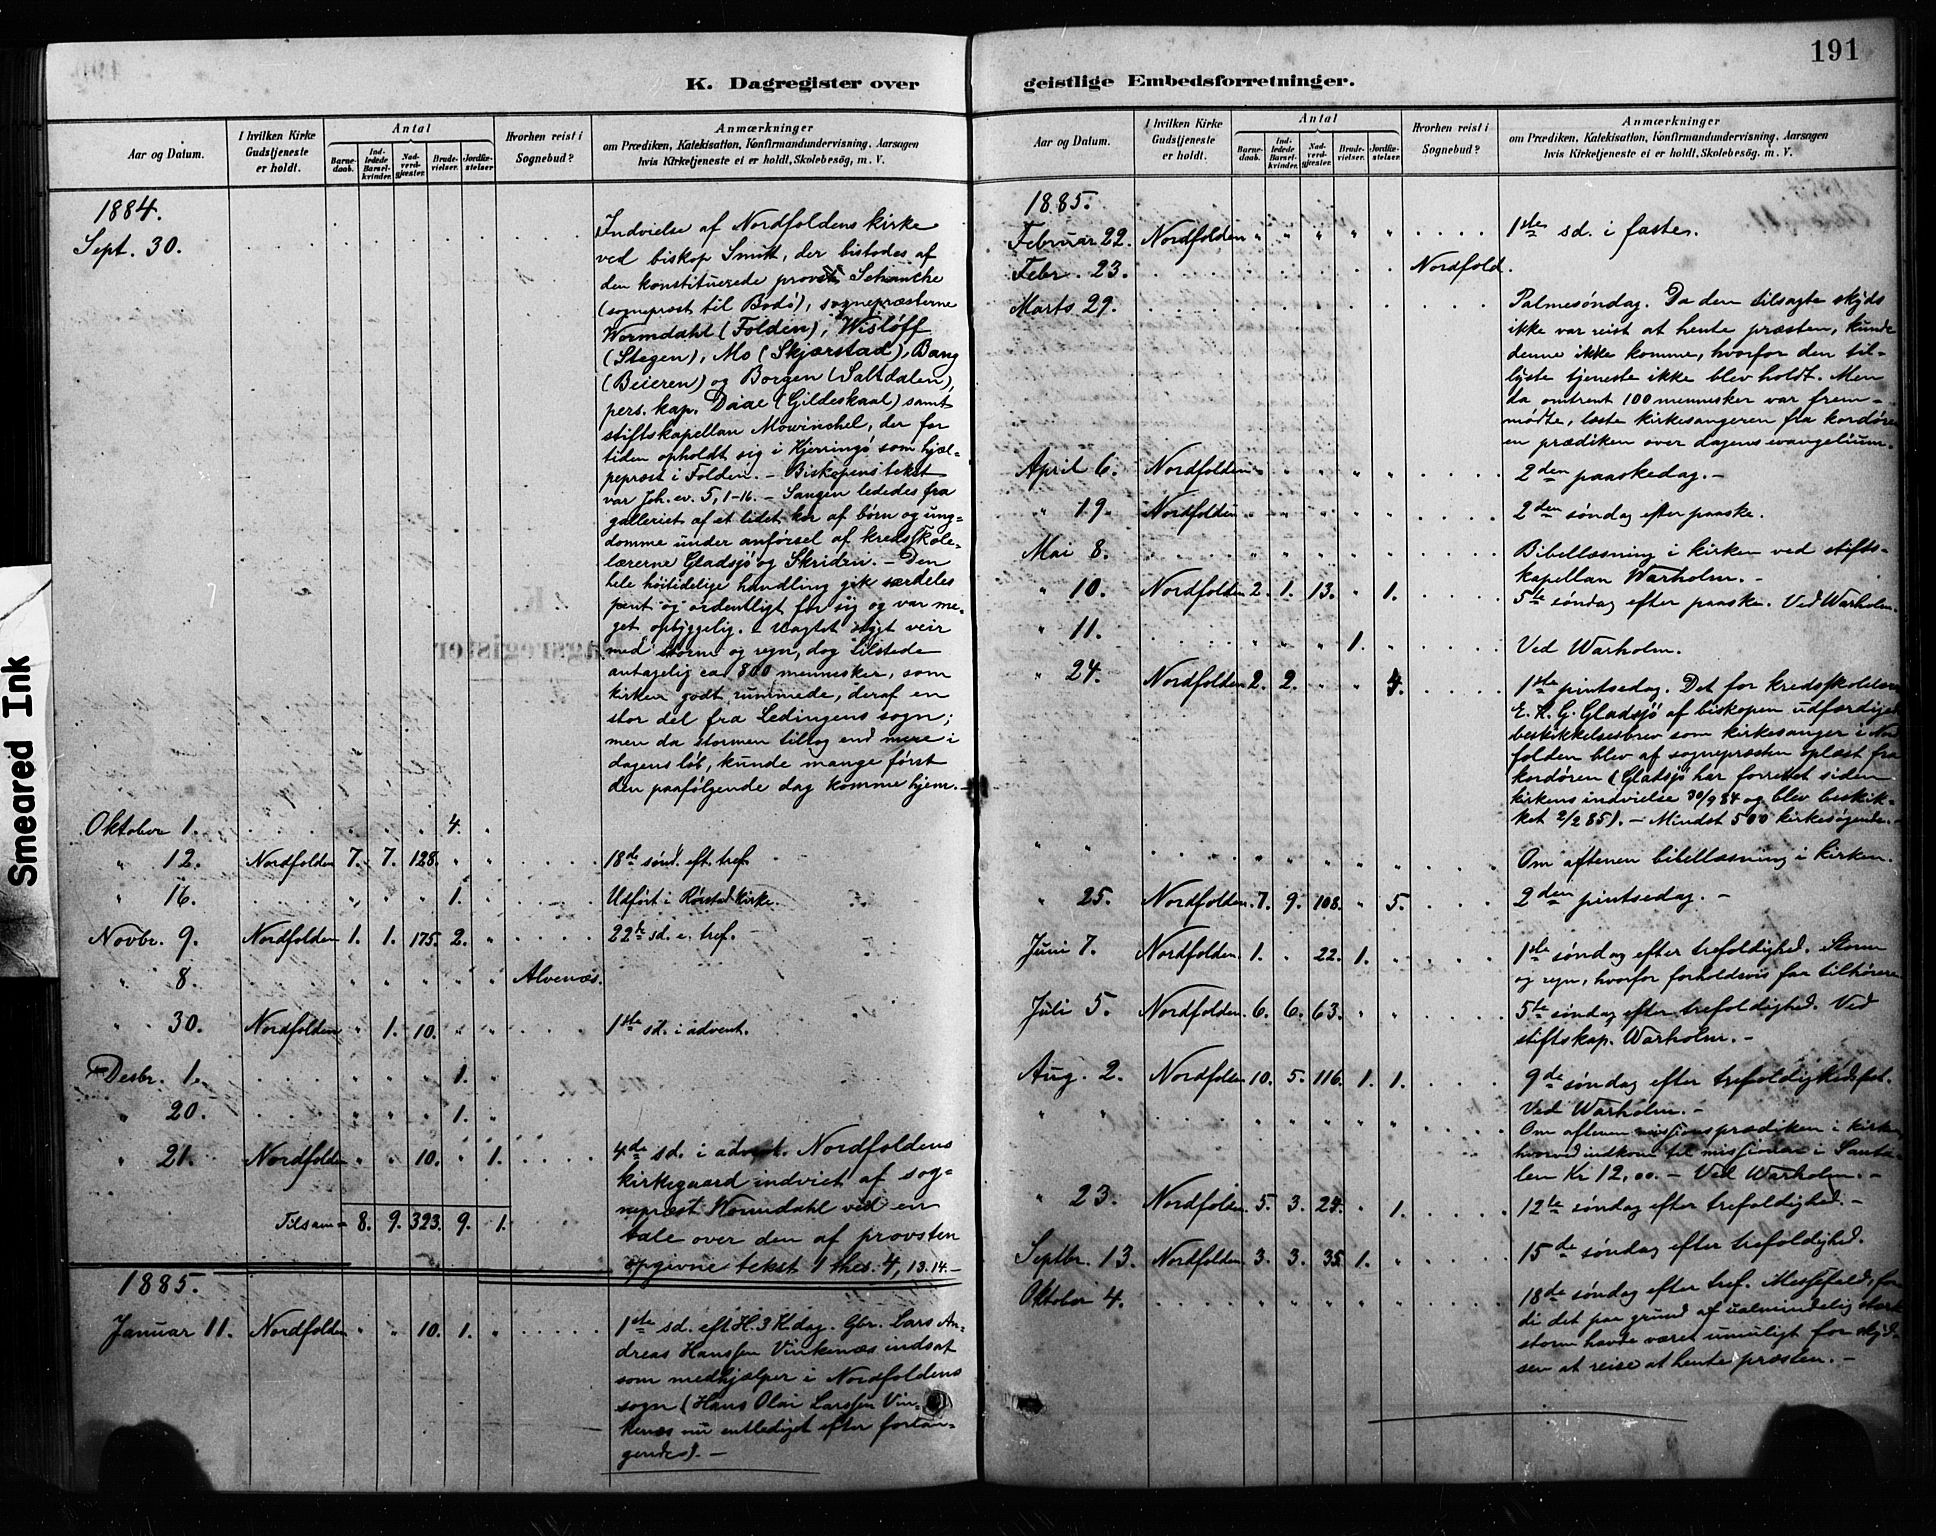 191
K. Dagregister over geistlige Embedsforretninger.
Smeared Ink
Aar og Datum. | I hvilken Kirke Gudstjeneste er holdt. | Antal | Barnedaab. | Indledede Barselkvinder. | Nadverdgjester. | Brudevielser. | Jordfæstelser | Hvorhen reist i Sognebud? | Anmærkninger
om Prædiken, Katekisation, Konfirmandundervisning, Aarsagen
hvis Kirketjeneste ei er holdt, Skolebesøg, m. V.
1884.
Sept. 30. Indvielse af Nordfoldens kirke
ved biskop Smitt, der bistodes af
den konstituerede provst Schanche
(sogneprest til Bodø), sognepræsterne
Wormdahl (Folden), Wisløff
(Stegen), Mo (Skjærstad), Bang
(Beieren) og Borgen (Saltdalen),
pers. kap. Daae (Gildeskaal) samt
stiftskapellan Mowinchel, der for
tiden opholdt sig i Kjerringø som hjæl-
peprest i Folden. – Biskopens tekst
var Joh. ev. 5, 1-16. – Sangen lededes fra
galleriet af et lidet kor af børn og ung-
domme under anførsel af kredsskole-
lærerne Gladsjø og Skridin. – Den
hele høitidelige handling gik særdeles
pent og ordentligt for sig og var me-
get opbyggelig. – Uagtet stygt veir
med storm og regn, dog tilstede
antagelig ca 800 mennesker, som
kirken godt rummede, deraf en
stor del fra Ledingens sogn;
men da stormen tiltog end mere i
dagens løb, kunde mange først
den paafølgende dag komme hjem. –
Oktober 1. " " " 4. "
" 12. Nordfolden 7. 7. 128. " " 18de sønd. eft. tref.
" 16. " " " 1. " Udført i Rørstad kirke.
Novbr. 9. Nordfolden 1. 1. 175. 2. " 22de sd. e. tref.
" 8. " " " " " Alvenæs.
" 30. Nordfolden " 1. 10. " " 1ste sd. i advent.
Desbr. 1. " " " 1. "
" 20. " " " 1. "
" 21. Nordfolden " " 10. " 1. 4de sd. i advent. Nordfoldens
kirkegaard indviet af sog-
neprest Wormdahl ved en
Tilsam= 8. 9. 323. 9. 1. tale over den af provsten
opgivne tekst 1 thes. 4, 13.14. –
1885.
Januar 11. Nordfolden " " 10. 1. " 1ste sd. eft H. 3 K. dag. Gbr. Lars An-
dreas Hanssen Vinkenæs indsat
som medhjælper i Nordfoldens
sogn (Hans Olai Larssen Vin-
kenæs nu entlediget efter forlan-
gende). –
Aar og Datum. | I hvilken Kirke Gudstjeneste er holdt. | Antal | Barnedaab. | Indledede Barselkvinder. | Nadverdgjester. | Brudevielser. | Jordfæstelser | Hvorhen reist i Sognebud? | Anmærkninger
om Prædiken, Katekisation, Konfirmandundervisning, Aarsagen
hvis Kirketjeneste ei er holdt, Skolebesøg. m. V.
1885.
Februar 22. Nordfolden " " " " " 1ste sd. i faste.
Febr. 23. Nordfold.
Marts 29. Palmesøndag. Da den tilsagte skyds
ikke var reist at hente præsten, kunde
denne ikke komme, hvorfor den til-
lyste tjeneste ikke blev holdt. Men
da omtrent 100 mennesker var frem-
mødte, læste kirkesangeren fra kordøren
en prædiken over dagens evangelium.
April 6. Nordfolden " " " " " 2den paaskedag. –
" 19. Nordfolden " " " " " 2den søndag efter paaske.
Mai 8. " " " " " Bibellæsning i kirken ved stifts-
kapellan Warholm. –
" 10. Nordfolden 2. 1. 13. " 1. 5te søndag efter paaske. Ved Warholm.
" 11. 1. " Ved Warholm.
" 24. Nordfolden 2. 2. " " 4. 1ste pintsedag. Det for kredsskolelærer
E. H. G. Gladsjø af biskopen udfærdigede
beskikkelsesbrev som kirkesanger i Nord
folden blev af sognepræsten oplæst fra
kordøren (Gladsjø har forrettet siden
kirkens indvielse 30/9 84 og blev beskik-
ket 2/2 85). – Mindst 500 kirkesøgende. –
" " " " " " " Om aftenen bibellæsning i kirken.
" 25. Nordfolden. 7. 9. 108. " 5. 2den pintsedag. –
Juni 7. Nordfolden. 1. " 22. 1. " 1ste søndag efter trefoldighed. Storm
og regn, hvorfor forholdsvis faa tilhørere
Juli 5. Nordfolden. 6. 6. 63. " " 5te søndag efter trefoldighed. Ved
stiftskap. Warholm. –
Aug. 2. Nordfolden 10. 5. 116. 1. 1. 9de søndag efter trefoldighedsfest.
Ved Warholm. –
" " " " " " " Om aftenen missionsprædiken i kirken
hvorved indkom til missionen i Santa-
len Kr 12,00. – Ved Warholm. –
" 23. Nordfolden 5. 3. 24. " 1. 12te søndag efter trefoldighed. –
Septbr. 13. Nordfolden. 3. 3. 35. 1. " 15de søndag efter trefoldighed.
Oktober 4. " " " " " 18de søndag efter tref. Messefald, for
di det paa grund af ualmindelig stærk
storm havde været umuligt for skyd-
sen at reise at hente præsten. –